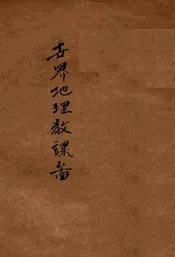 世界地理教課畨